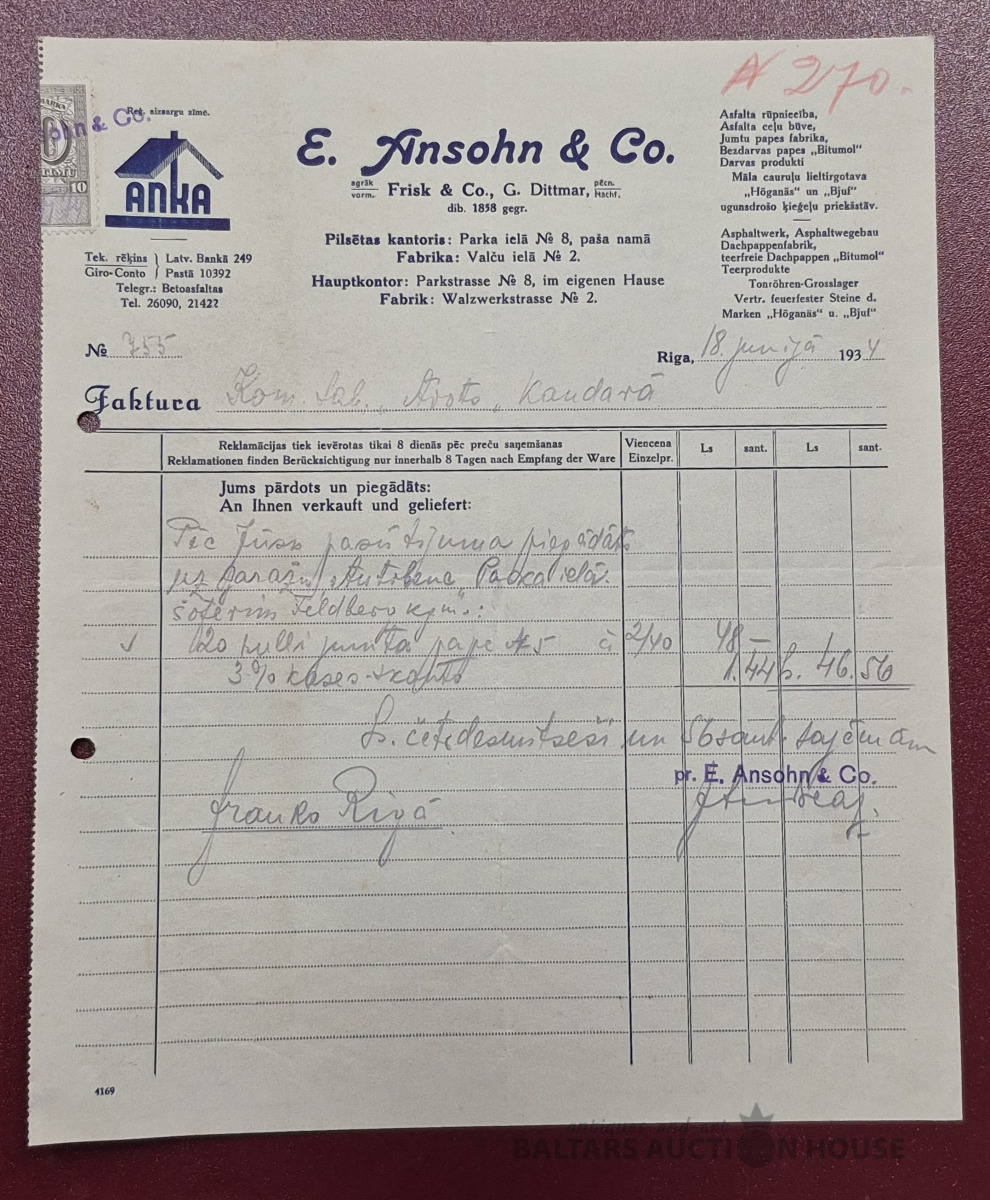 № 270.
ohn & Co.
10
Reģ. aizsargu zīme.
ANKA
E. Ansohn & Co.
agrāk vorm. Frisk & Co., G. Dittmar, pēcn. Nachf.
dib. 1858 gegr.
Pilsētas kantoris: Parka ielā № 8, paša namā
Fabrika: Valču ielā № 2.
Hauptkontor: Parkstrasse № 8, im eigenen Hause
Fabrik: Walzwerkstrasse № 2.
Asfalta rūpniecība,
Asfalta ceļu būve,
Jumtu papes fabrika,
Bezdarvas papes „Bitumol"
Darvas produkti
Māla cauruļu lieltirgotava
„Höganäs" un „Bjuf"
ugunsdrošo ķieģeļu priekšstāv.
Asphaltwerk, Asphaltwegebau
Dachpappenfabrik,
teerfreie Dachpappen „Bitumol"
Teerprodukte
Tonröhren-Grosslager
Vertr. feuerfester Steine d.
Marken „Höganäs" u. „Bjuf"
Tek. rēķins Latv. Bankā 249
Giro-Conto Pastā 10392
Telegr.: Betoasfaltas
Tel. 26090, 21422
№ 755
Riga, 18. junijā 1934
Faktura Kom. Sab. „Avots„ Kandavā
Reklamācijas tiek ievērotas tikai 8 dienās pēc preču saņemšanas
Reklamationen finden Berücksichtigung nur innerhalb 8 Tagen nach Empfang der Ware
Viencena Einzelpr. Ls sant. Ls sant.
Jums pārdots un piegādāts:
An Ihnen verkauft und geliefert:
Pēc Jūsu pasūtijuma piegādāts
uz garažu „Autobuss„ Parka ielā.
šoferim Feldberg kgm.:
20 ruļļi jumta pape № 5 à 2/40 48 —
3% kases-skonto 1.44 Ls. 46.56
Ls. četrdesmitseši un 56 sant. saņēmām
pr. E. Ansohn & Co.
franko Rīgā
4169
BALTARS AUCTION HOUSE